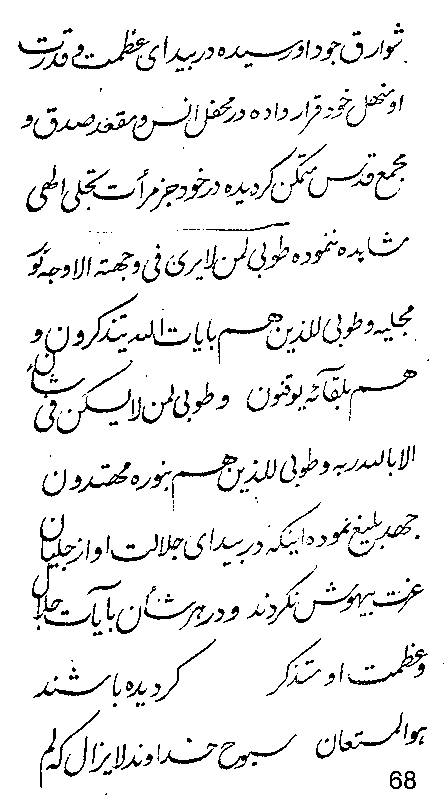 شوارق جود او رسیده در بیدای عظمت و قدرت
او منهل خود قرار داده در محفل انس و مقعد صدق و
مجمع قدس متمکن کردیده در خود جز مرأت تجلی الهی
مشاهده ننموده طوبی لمن لایری فی وجهته الا وجه نور
مجلیه و طوبی للذین هم بایات الله یتذکرون و
هم بلقآئه یوقنون و طوبی لمن لا یسکن فی شأن
الا بالله ربه و طوبی للذین هم بنوره مهتدون
جهد بلیغ نموده اینکه در بیدای جلالت او از جلیان
عزت بیهوش نکردند و در هر شأن بآیات جلال
و عظمت او متذکر کردیده باشند
هو المستعان سبوح خداوند لایزال که لم
68